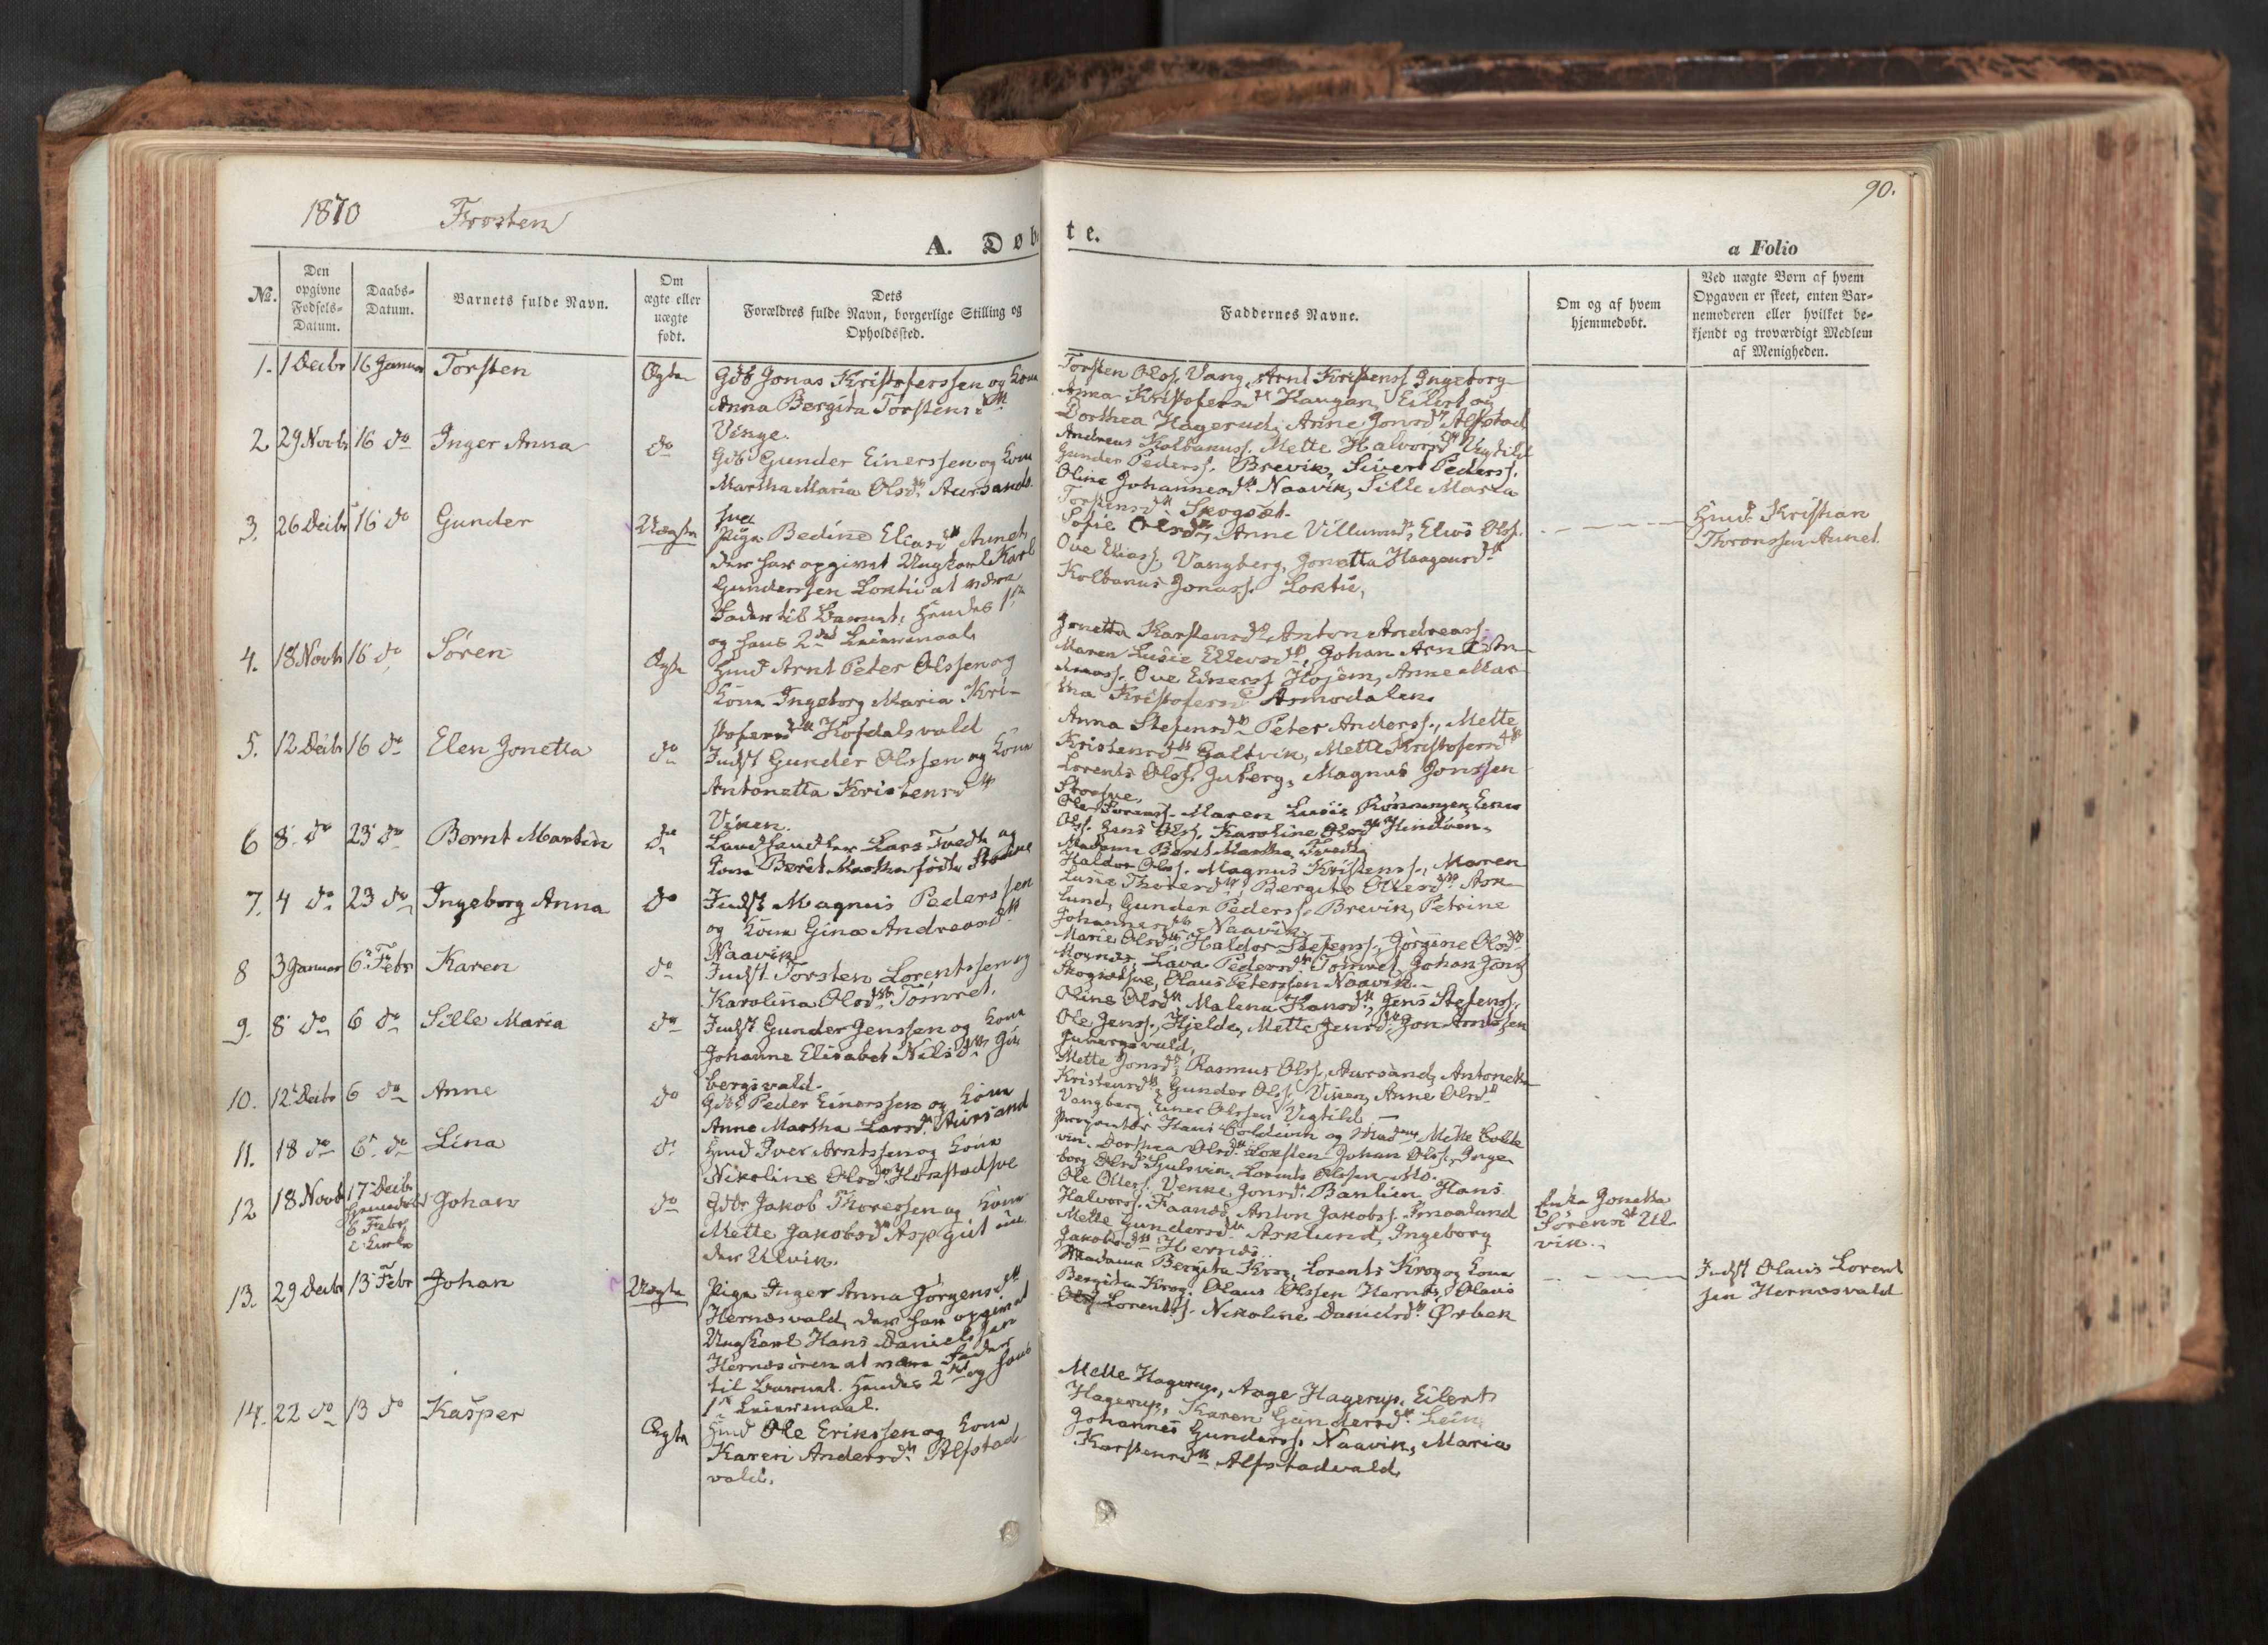 1870 Frosten
90.
A. Døb
te.
a Folio
No.
Den opgivne Fødsels-Datum.
Daabs-Datum.
Barnets fulde Navn.
Om ægte eller uægte født.
Dets Forældres fulde Navn, borgerlige Stilling og Opholdssted.
Faddernes Navne.
Om og af hvem hjemmedøbt.
Ved uægte Børn af hvem Opgaven er skeet, enten Barnemoderen eller hvilket bekjendt og troværdigt Medlem af Menigheden.
1. 1 Decbr 16 Januar Torsten Ægte
Gdb Jonas Kristofersen og Kone
Anna Bergita Torstensdtr
Vinge.
Torsten Olss. Vang, Arnt Kristenss. Ingeborg
Anna Kristofersdtr Haugan, Eilert og
Dorthea Hagerud, Anne Jonsdtr Alfstad
2 29 Novbr 16 do Inger Anna do
Gdb Gunder Einerssen og Kone
Martha Maria Olsdtr Aursand
Andreas Kolbanuss. Mette Halvorsdtr Vigtild
Gunder Pederss. Brevik, Sivert Pederss.
Oline Johannesdtr Naavik, Sille Maria
Torstensdtr Skogsæt.
3. 26 Decbr 16 do Gunder Uægte
Pige Bedine Eliasdtr Aunet,
der har opgivet Ungkarl Karl
Gunderssen Loktu at være
Fader til Barnet. Hendes 1ste
og hans 2det Leiermaal
Sofie Olsdtr, Anne Villumsdtr, Elias Olss.
Ove Eliass. Vangberg, Jonetta Haagensdtr
Kolbanus Jonass. Loktu,
Hmd Kristian
Thoranssen Aunet.
4. 18 Novbr 16 do Søren Ægte
Hmd Arnt Peter Olssen og
Kone Ingeborg Maria Kri-
stofersdtr Hofdalsvald
Jonetta Karstensdtr Anton Andreass.
Maren Lusie Ellevsdtr, Johan Arnt An-
dreass. Ove Einerss. Hojem, Anne Mar-
tha Kristofersd Aamodalen.
5. 12 Decbr 16 do Elen Jonetta do
Indst Gunder Olssen og Kone
Antonetta Kristensdtr
Viken.
Anna Stefensdtr Peter Anderss., Mette
Kristensdtr Galtvik, Mette Kristofersdtr
Lorents Olss. Juberg, Magnus Jonssen
6 8 do 23 do Bernt Martin do
Landhandler Lars Tvedt og
Kone Berit Martha født
Maren Lusie
Olss. Jens Olss. Karoline Olsdtr
Madame Berit Martha Tvedt,
7. 4 do 23 do Ingeborg Anna do
Indst Magnus Pederssen
og Kone Gina Andreasdtr
Naavik
Haldor Olss. Magnus Kristenss., Maren
Lusie Thoresdtr, Bergite Ollesdtr Ask-
lund, Gunder Pederss. Brevik, Petrine
Johannesdtr Naavik,
8 3 Januar 6 Febr Karen do
Indst Torsten Lorentssen og
Karolina Olsdtr Tømret.
Marie Olsdtr, Haldor Stefenss., Jørgine Olsdtr
Lava Pedersdtr Tømret, Johan Jons
Skogsætsve, Olaus Peterssen Naavik.
9. 8 do 6 do Sille Maria do
Indst Gunder Jenssen og Kone
Johanna Elisabet Nilsdtr Gu-
bergsvald.
Oline Olsdtr Malena Hansdtr Jens Stefenss.,
Ole Jenss., Hjelde, Mette Jensdtr Jon Arntssen
Jubergsvald,
10. 12 Decbr 6 do Anne do
Gdb Peder Einerssen og Kone
Anne Martha Larsdtr Aursand
Mette Jonsdtr, Rasmus Olss. Aursand, Antonetta
Kristensdtr, Gunder Olss. Viken, Anne Olsdtr
Vangberg, Einer Olssen Vigtild
11. 18 do 6 do Lina do
Hmd Iver Arntssen og Kone
Nikoline Olsdtr Hokstadsve
Hans Coldevin og Madme Mette Colde-
vin. Dorthea Olsdtr Johan Olss. Inge-
borg Olsdtr Lorents Olssen Mo.
12 18 Novbr 17 Decbr hjemmedøbt 6 Febr i Kirke Johan do
Gdbr Jakob Thoressen og Kone
Mette Jakobsdtr Aspgut un-
der Ulvik.
Ole Olless. Venke Jonsdtr Banlien, Hans
Halvorss. Faanes, Anton Jakobss. Smaaland
Mette Gundersdtr Asklund, Ingeborg
Jakobsdtr Hernes.
Enke Jonetta
Sørensdtr Ul-
vik.
13. 29 Decbr 13 Febr Johan Uægte
Pige Inger Anna Jørgensdtr
Hernesvald, der har opgivet
Ungkarl Hans Danielssen
Hernesøren at være Fader
til Barnet. Hendes 2det og hans
1ste Leiermaal.
Madame Bergita Krog, Lorents Krog og Kone
Bergita Krog. Olaus Olssen Hernes, Olaus
Lorentss. Nikoline Danielsdtr Ørbek
Indst Olaus Lorent
sen Hernesvald
14. 22 do 13 do Kasper Ægte
Hmd Ole Erikssen og Kone
Karen Andersdtr Alfstad-
vald.
Mette Hagerup, Aage Hagerup, Eilert
Hagerup, Karen Gundersdtr Lein,
Johannes Gunderss. Naavik, Maria
Karstensdtr Alfstadvald,